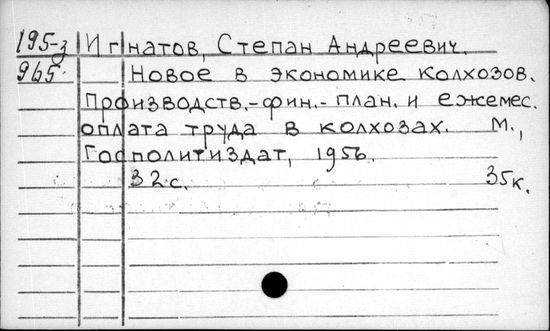 195-з Игнатов, Степан Андреевич.
965. Новое в экономике колхозов.
Производств.-фин.-план. и ежемес.
оплата труда в колхозах. М.,
Госполитиздат, 1956.
32 с. 35к.